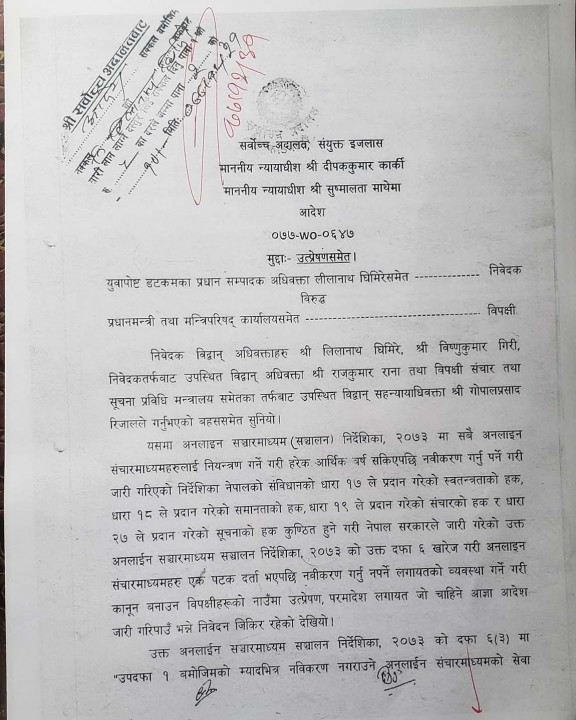 श्री सर्वोच्च अदालतबाट
सर्वोच्च अदालत, संयुक्त इजलास
माननीय न्यायाधीश श्री दीपककुमार कार्की
माननीय न्यायाधीश श्री सुष्मालता माथेमा
आदेश
०७७-WO-०६४७
मुद्दाः- उत्प्रेषणसमेत।
युवापोष्ट डटकमका प्रधान सम्पादक अधिवक्ता लीलानाथ घिमिरेसमेत -------------- निवेदक
विरुद्ध
प्रधानमन्त्री तथा मन्त्रिपरिषद् कार्यालयसमेत ------------------------------------ विपक्षी
निवेदक विद्वान् अधिवक्ताहरु श्री लिलानाथ घिमिरे, श्री विष्णुकुमार गिरी,
निवेदकतर्फबाट उपस्थित विद्वान् अधिवक्ता श्री राजकुमार राना तथा विपक्षी संचार तथा
सूचना प्रविधि मन्त्रालय समेतका तर्फबाट उपस्थित विद्वान् सहन्यायाधिवक्ता श्री गोपालप्रसाद
रिजालले गर्नुभएको बहससमेत सुनियो।
यसमा अनलाइन सञ्चारमाध्यम (सञ्चालन) निर्देशिका, २०७३ मा सबै अनलाइन
संचारमाध्यमहरुलाई नियन्त्रण गर्ने गरी हरेक आर्थिक वर्ष सकिएपछि नवीकरण गर्नु पर्ने गरी
जारी गरिएको निर्देशिका नेपालको संविधानको धारा १७ ले प्रदान गरेको स्वतन्त्रताको हक,
धारा १८ ले प्रदान गरेको समानताको हक, धारा १९ ले प्रदान गरेको संचारको हक र धारा
२७ ले प्रदान गरेको सूचनाको हक कुण्ठित हुने गरी नेपाल सरकारले जारी गरेको उक्त
अनलाईन सञ्चारमाध्यम सञ्चालन निर्देशिका, २०७३ को उक्त दफा ६ खारेज गरी अनलाइन
संचारमाध्यमहरु एक पटक दर्ता भएपछि नवीकरण गर्नु नपर्ने लगायतको व्यवस्था गर्ने गरी
कानून बनाउन विपक्षीहरूको नाउँमा उत्प्रेषण, परमादेश लगायत जो चाहिने आज्ञा आदेश
जारी गरिपाउँ भन्ने निवेदन जिकिर रहेको देखियो।
उक्त अनलाईन सञ्चारमाध्यम सञ्चालन निर्देशिका, २०७३ को दफा ६(३) मा
"उपदफा १ बमोजिमको म्यादभित्र नविकरण नगराउने अनलाईन संचारमाध्यमको सेवा